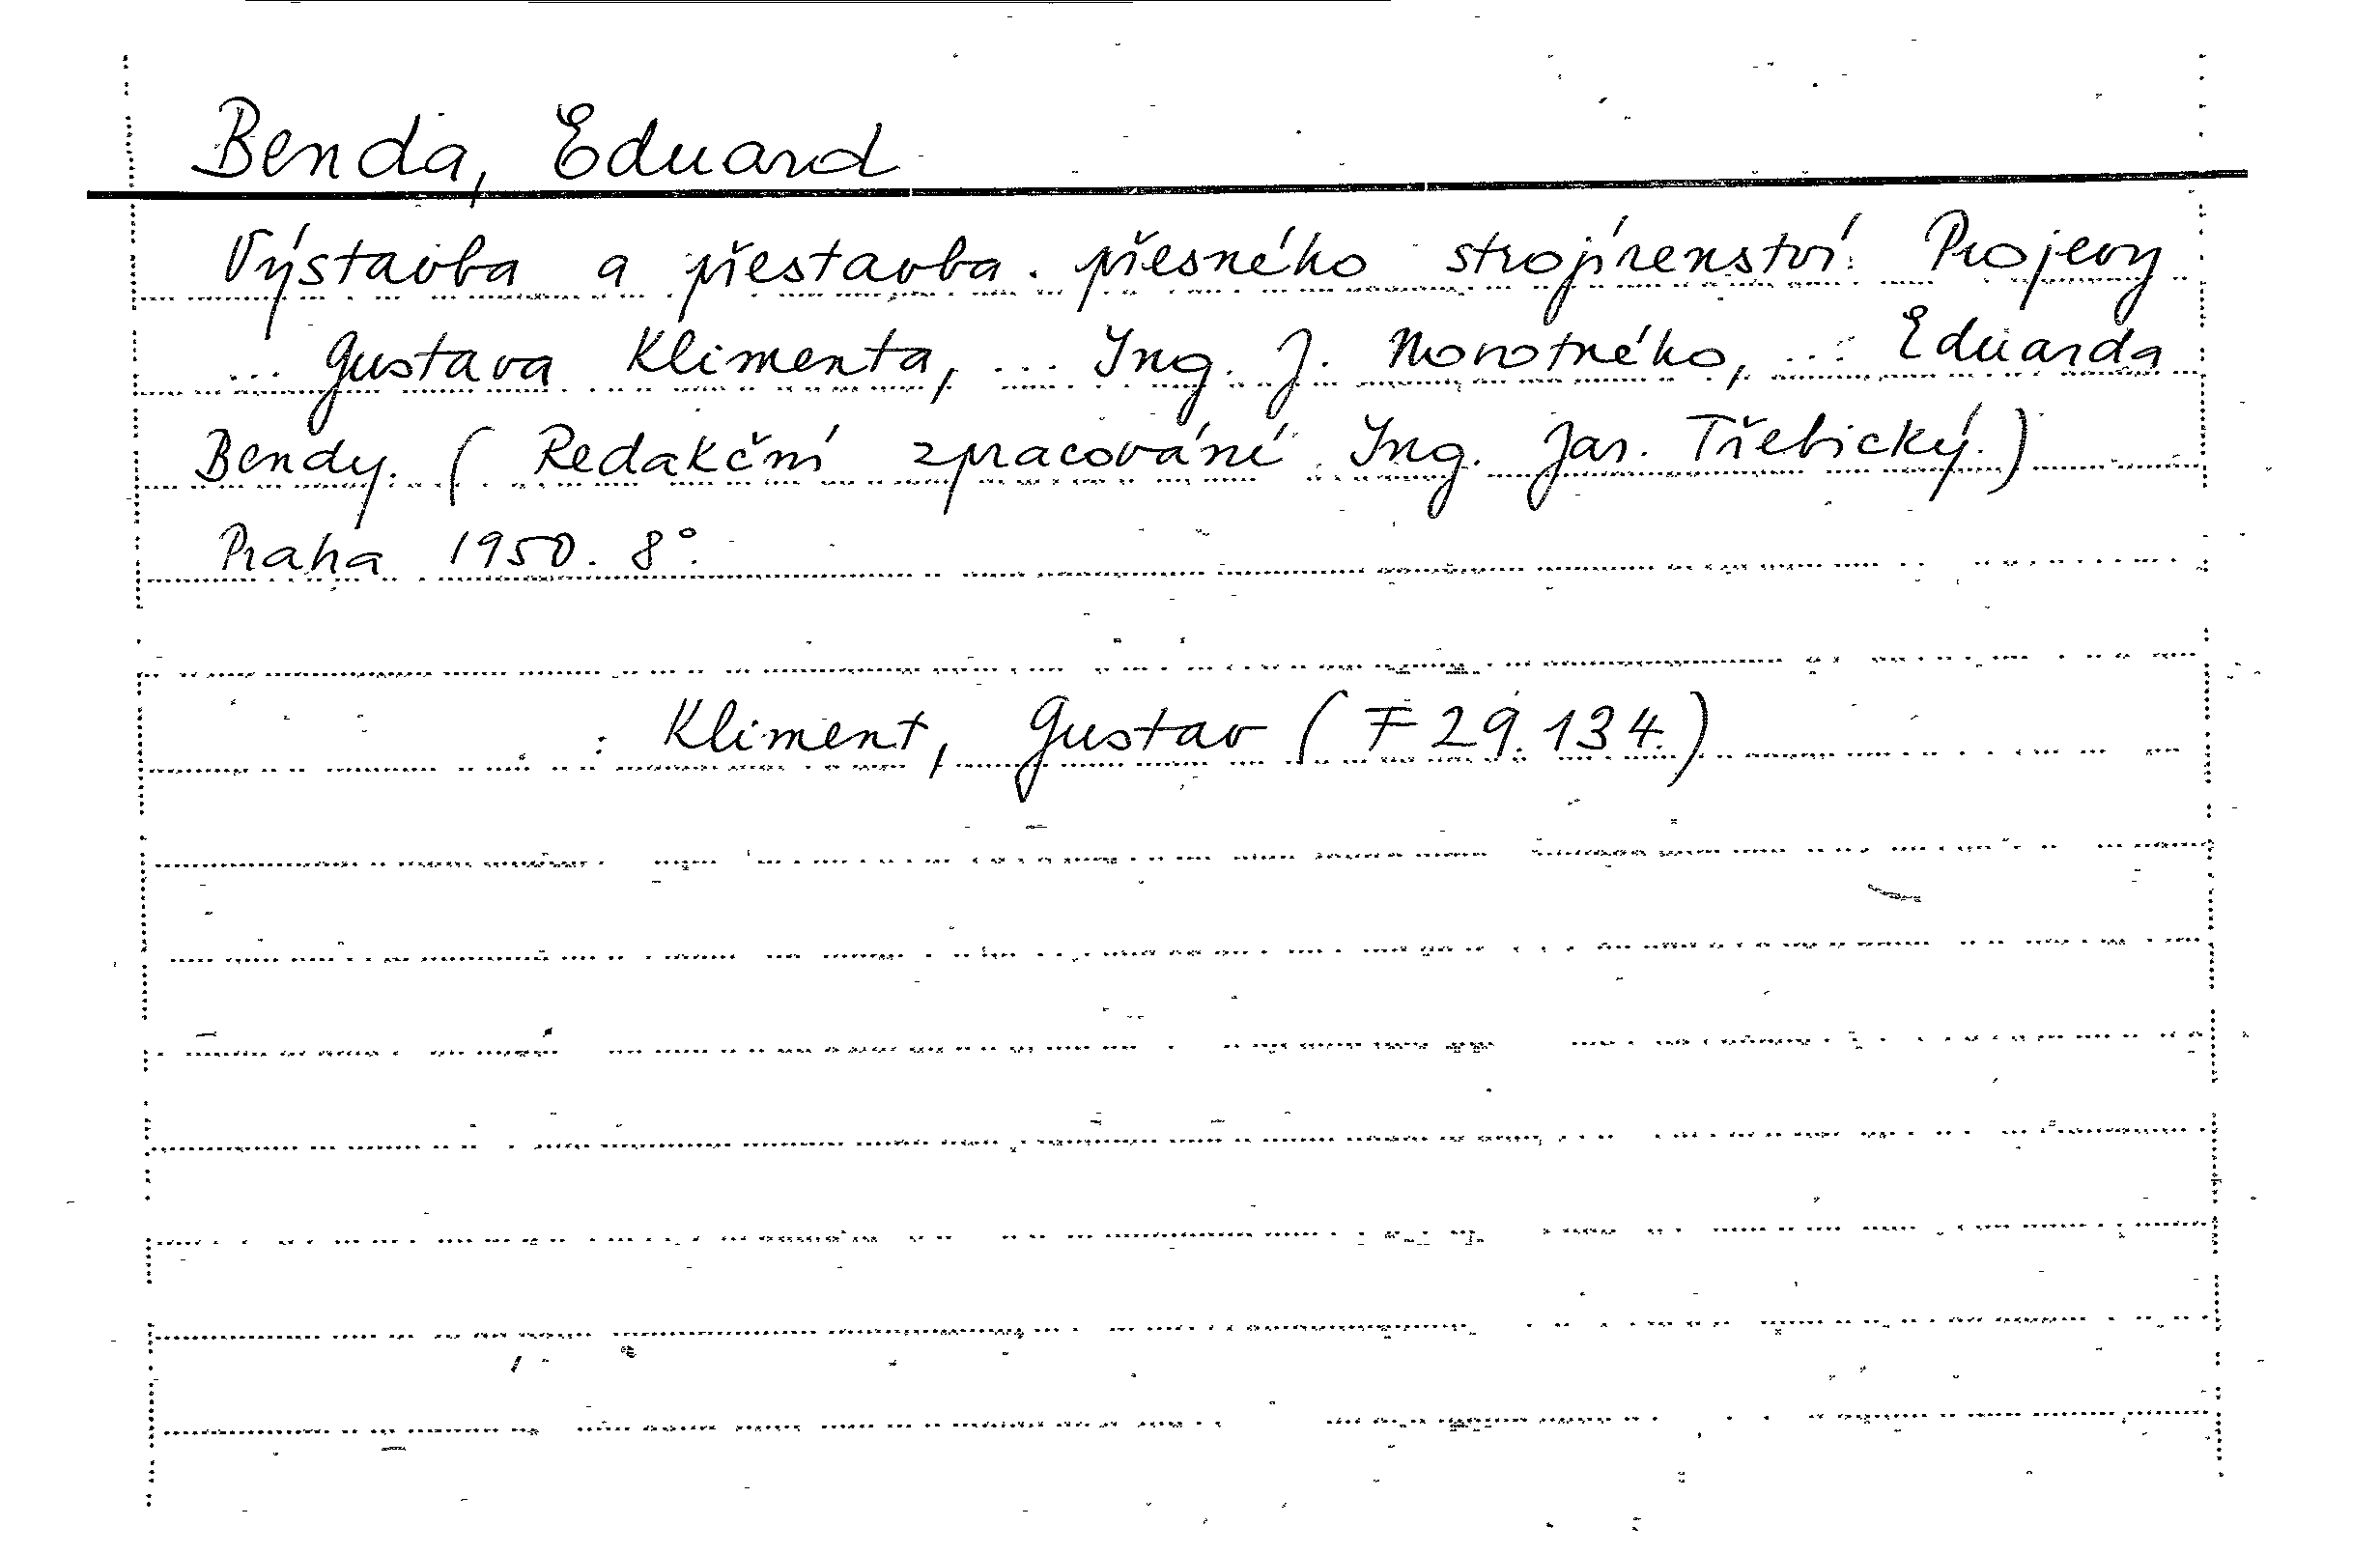 Benda, Eduard
Výstavba a přestavba přesného strojírenství. Projevy
... Gustava Klimenta, ... Ing. J. Novotného, ... Eduarda
Bendy. (Redakční zpracování Ing. Jar. Třebický.)
Praha 1950. 8°.
: Kliment, Gustav (F 29.134.)